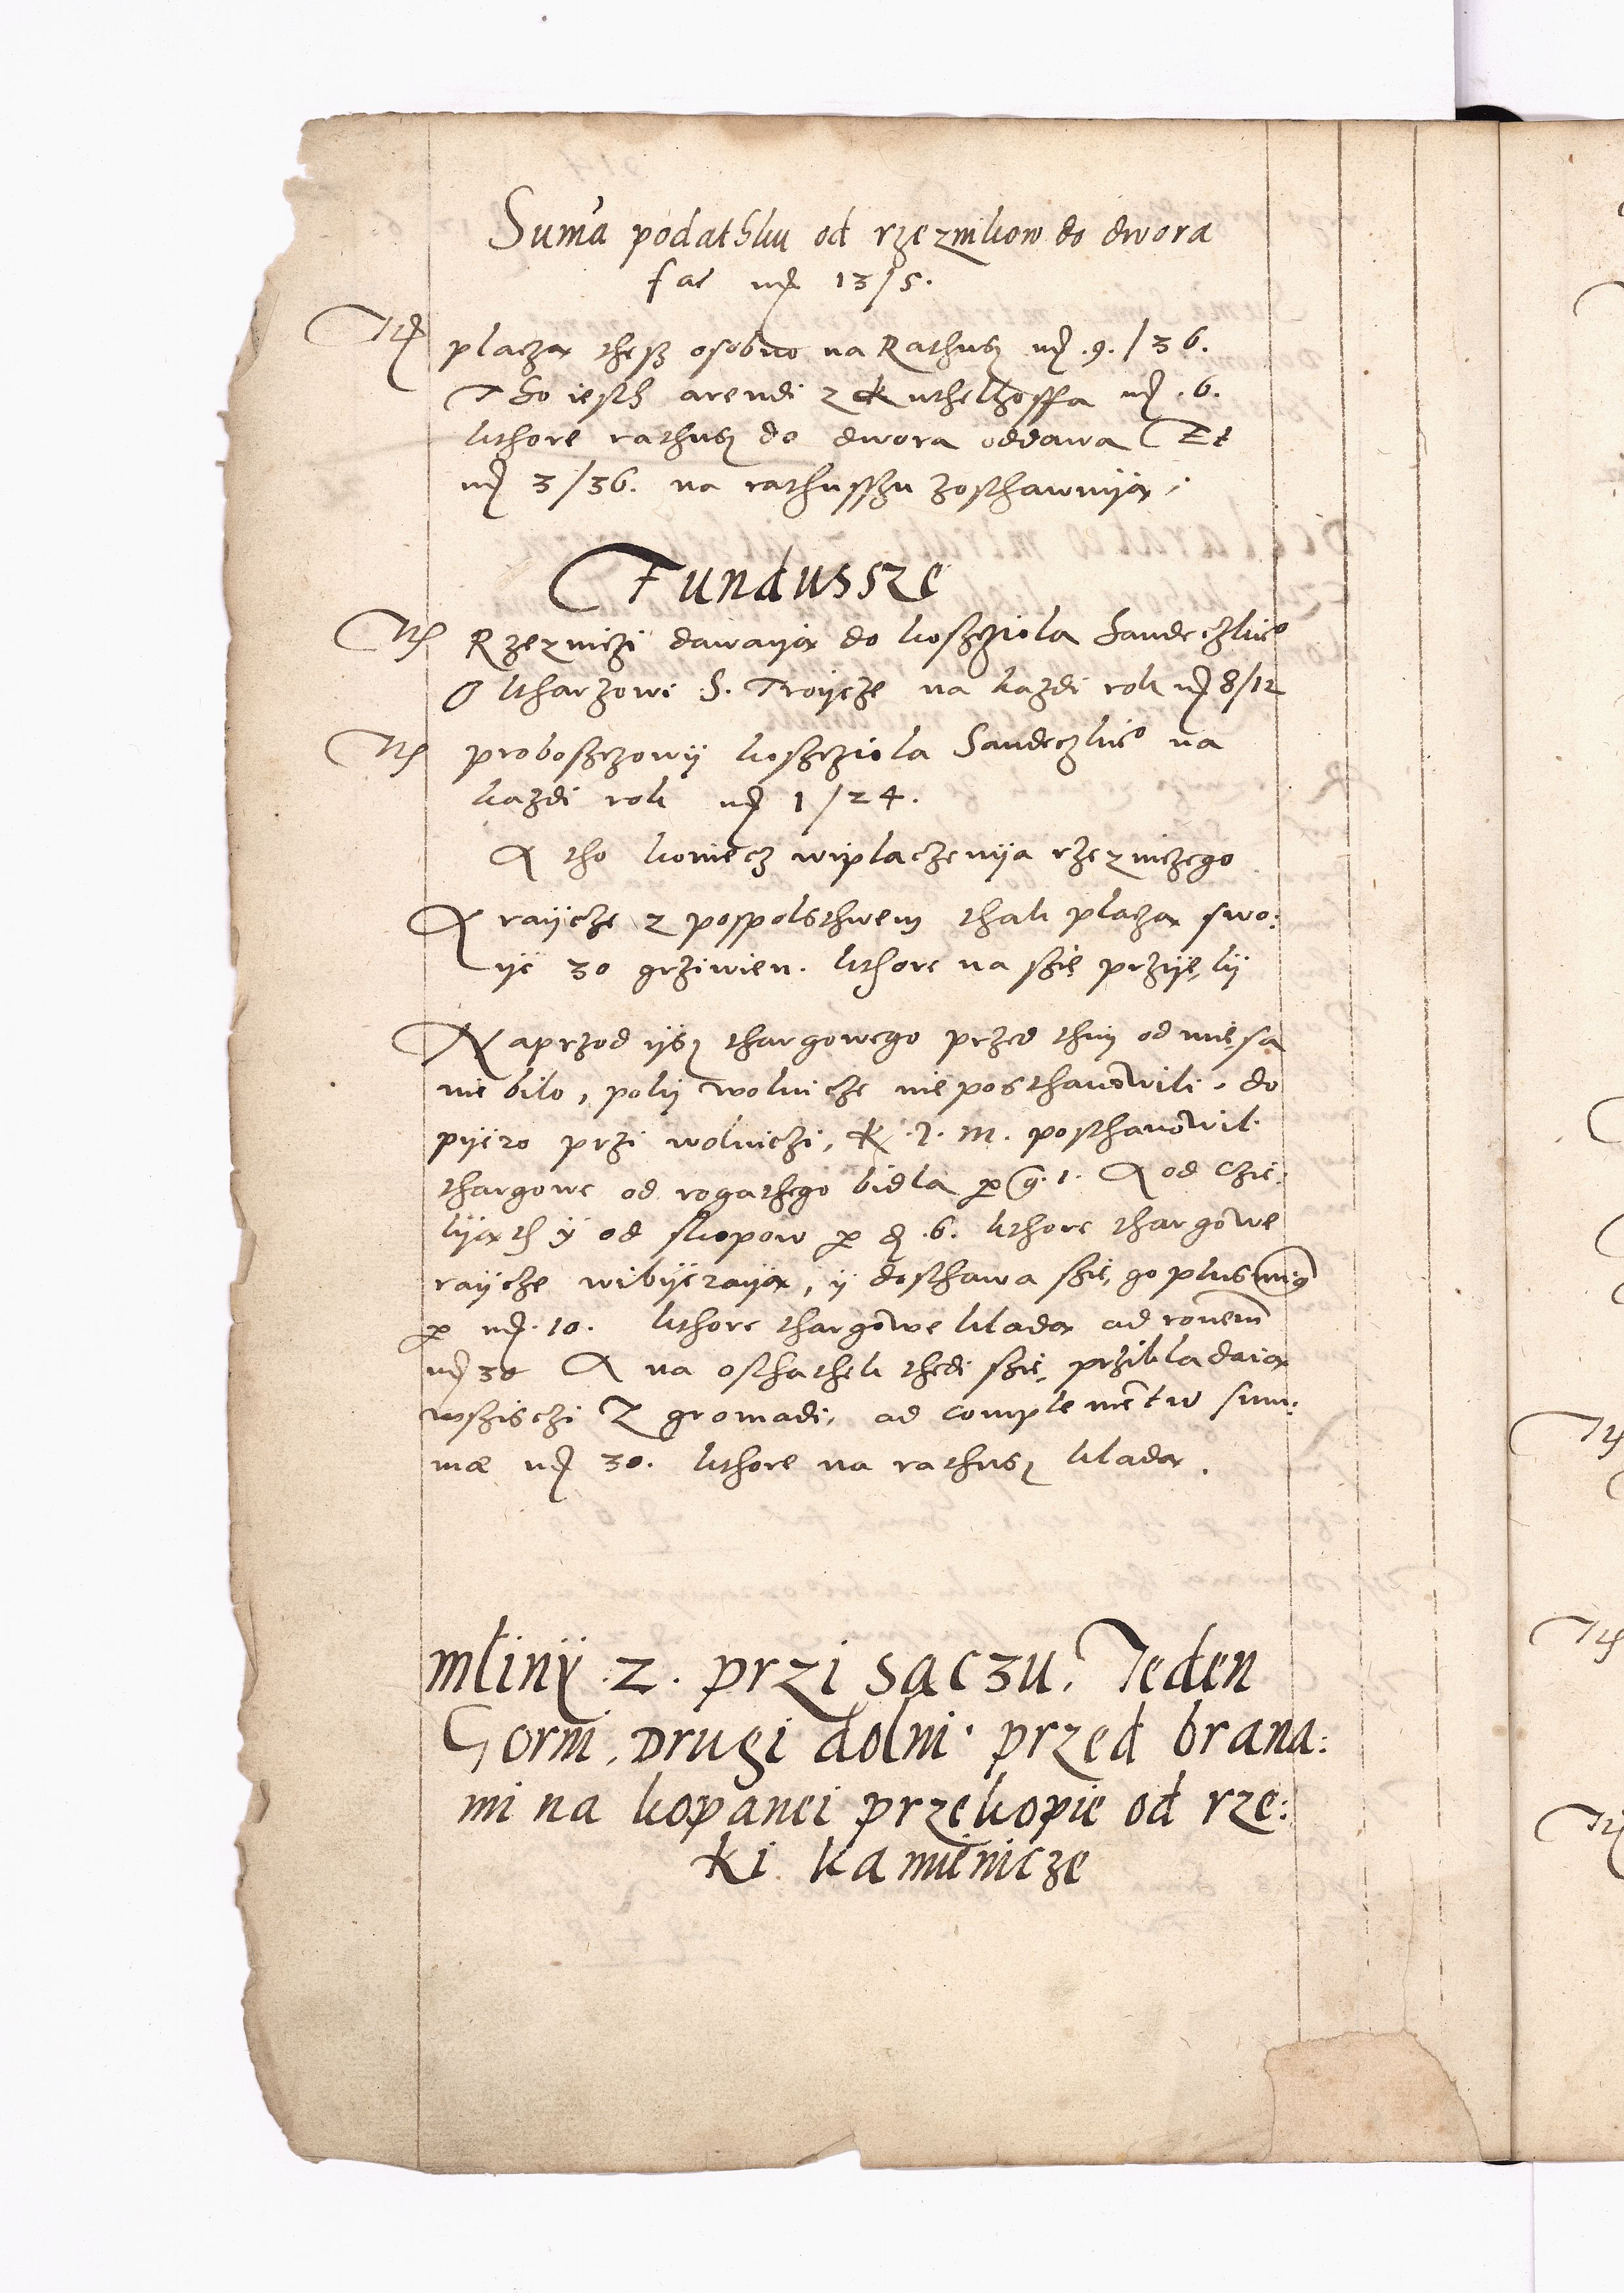 Sum̃a podathku od rzeznikow do dwora
fac mr̃ 13/5.
It̃ placzą thesz osobno na Rathusz mr̃ .9./36.
Tho iesth arendi z Kuthelhoffa mr̃ .6.
kthore rathusz do dwora oddawa Et
mr̃ 3/36. na rathusszu zosthawuyą.
Fundussze
It̃ Rzezniczi dawayą do kosczziola Sandeczkie°
Oltharzowi S. Troycze na kazdi rok mr̃ 8/12
It̃ proboszczowy kosczziola Sandeczkie° na
kazdi rok mr̃ 1/24.
A tho koniecz wiplaczenya rzezniczego
A raycze z pospolsthwem thak placzą swo:
ye 30 grziwien. kthore na szię przyyęly
Naprzod ysz thargowego przed thim od mięsa
nie bilo, poky wolnicze nie posthanowili. do
pyero przi wolniczi, K. J. M. posthanowil
thargowe od rogathego bidla p g. 1. A od czie:
lyąth y od skopow p đ .6. kthore thargowe
raycze wibyerayą, y dosthawa szię go plus mi9
p mr̃. 10. kthore thargowe kladą ad ronem̃
mr̃ 30 A na osthathek thedi szię przikladaią
wszisczi Z gromadi, ad complementũ sum:
mæ mr̃ 30. kthore na rathusz kladą.
mliny .2. przi sączu. Jeden
Gorni, Drugi dolni. przed brana:
mi na kopanei przekopie od rze:
ki kamienicze